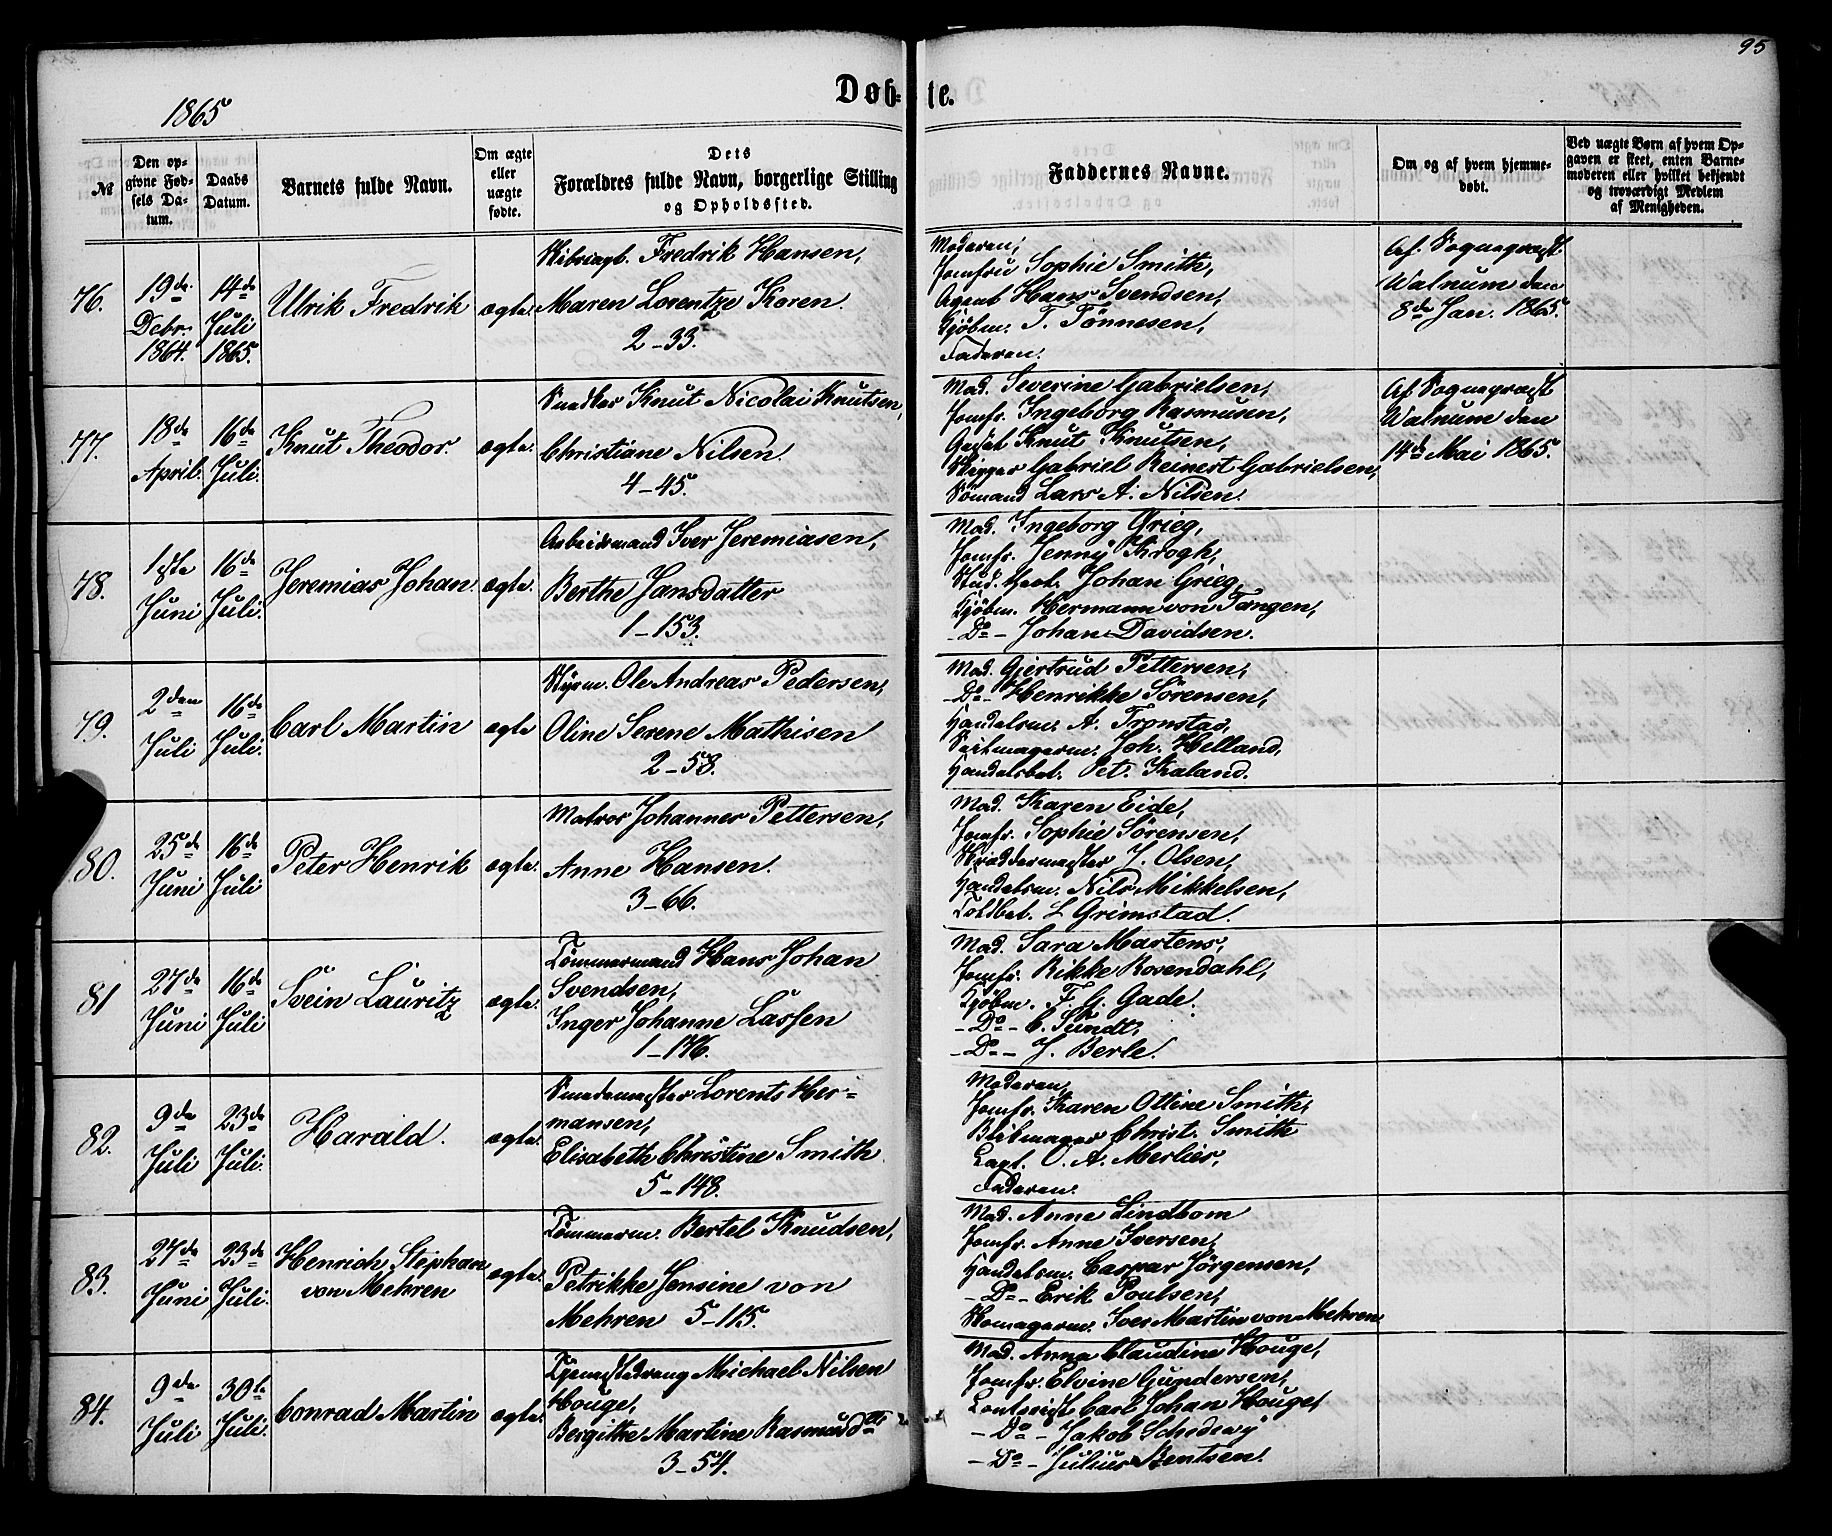 95
1865
Døb- te.
№
Den opgivne Fødsels Datum.
Daabs Datum.
Barnets fulde Navn.
Om ægte eller uægte fødte.
Dets Forældres fulde Navn, borgerlige Stilling og Opholdssted.
Faddernes Navne.
Om og af hvem hjemmedøbt.
Ved uægte Børn af hvem Opgaven er skeet, enten Barnemoderen eller hvilket bekjendt og troværdigt Medlem af Menigheden.
76.
19de Debr. 1864.
14de Juli 1865.
Ulrik Fredrik
ægte
Fredrik Hansen,
Maren Lorentze Koren.
2-33.
Moderen,
Jomfru Sophie Smith,
Agent Hans Svendsen,
Kjøbm. T. Tönnesen,
Faderen.
Af Sognepræst
Walnum den
8de Jan. 1865.
77.
18de April.
16de Juli.
Knut Theodor.
ægte.
Snedker Knut Nicolai Knutsen,
Christiane Nilsen.
4-45.
Mad. Severine Gabrielsen,
Jomfr. Ingeborg Rasmusen,
Knut Knutsen,
Skipper Gabriel Reinert Gabrielsen,
Sömand Lars A. Nilsen.
Af Sognepræst
Walnum den
14de Mai 1865.
78.
1ste Juni
16de Juli.
Jeremias Johan.
ægte.
Arbeidsmand Iver Jeremiasen,
Berthe Jansdatter
1-153.
Mad. Ingeborg Grieg,
Jomfr. Jenny Krogh,
Stud. Johan Grieg,
Kjöbm. Hermann von Tangen,
-Do- Johan Davidsen.
79.
2den Juli
16de Juli.
Carl Martin
ægte
Styrm. Ole Andreas Pedersen,
Oline Serene Mathisen
2-58.
Mad. Gjertrud Pettersen,
-Do- Henrikke Sörensen,
Handelsm. A. Tronstad,
Seilmagerm. Joh. Helland,
Handelsbet. Pet. Kaland.
80.
25de Juni
16de Juli
Peter Henrik
ægte.
Matros Johannes Pettersen,
Anne Hansen.
3-66.
Mad. Karen Eide,
Jomfr. Sophie Sörensen,
Skræddermester J. Olsen,
Handelsm. Nils Mikkelsen,
Toldbet. L Grimstad.
81
27de Juni
16de Juli
Svein Lauritz
ægte.
Tömmermand Hans Johan
Svendsen,
Inger Johanne Lassen
1-176.
Mad. Sara Martens,
Jomfr. Rikke Rosendahl,
Kjöbm. F. G. Gade.
-Do- C. Sundt,
-Do- J. Berle.
82.
9de Juli
23de Juli.
Harald.
ægte.
Smedemester Lorents Her-
mansen,
Elisabeth Christine Smith.
5-148.
Moderen,
Jomfr. Karen Ottine Smith,
Christ. Smith
Capt. O. A. Merlies,
Faderen.
83.
27de Juni
23de Juli.
Henrich Stephan
von Mehren
ægte.
Tömmerm. Bertel Knudsen,
Petrikke Jensine von
Mehren 5-115.
Mad. Anne Lindbom
Jomfr. Anne Iversen,
Handelsm. Caspar Jörgensen,
-Do- Erik Poulsen,
Skomagerm. Iver Martin von Mehren
84.
9de Juli
30te Juli.
Conrad Martin
ægte.
Tjenestedreng Michael Nilsen
Houge,
Bergitte Martine Rasmusdtr
3-54.
Mad. Anna Claudine Houge,
Jomfr. Elvine Gundersen,
Contorist Carl Johan Houge,
-Do- Jakob Schedewy
-Do- Julius Bentsen.